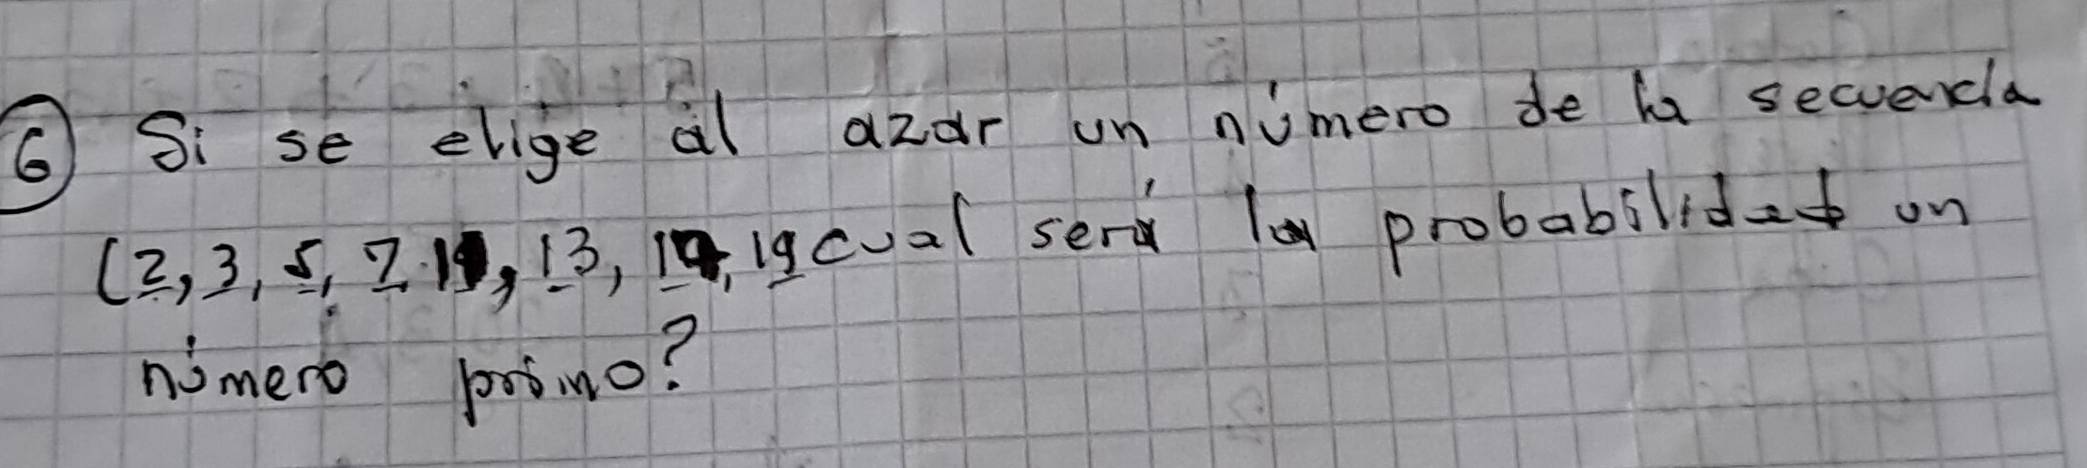 6 Si se elige al azar un número de la secuencia
(2, 3, 5, 7, 11, 13, 17, 19 cual será la probabilidad un
número primo?